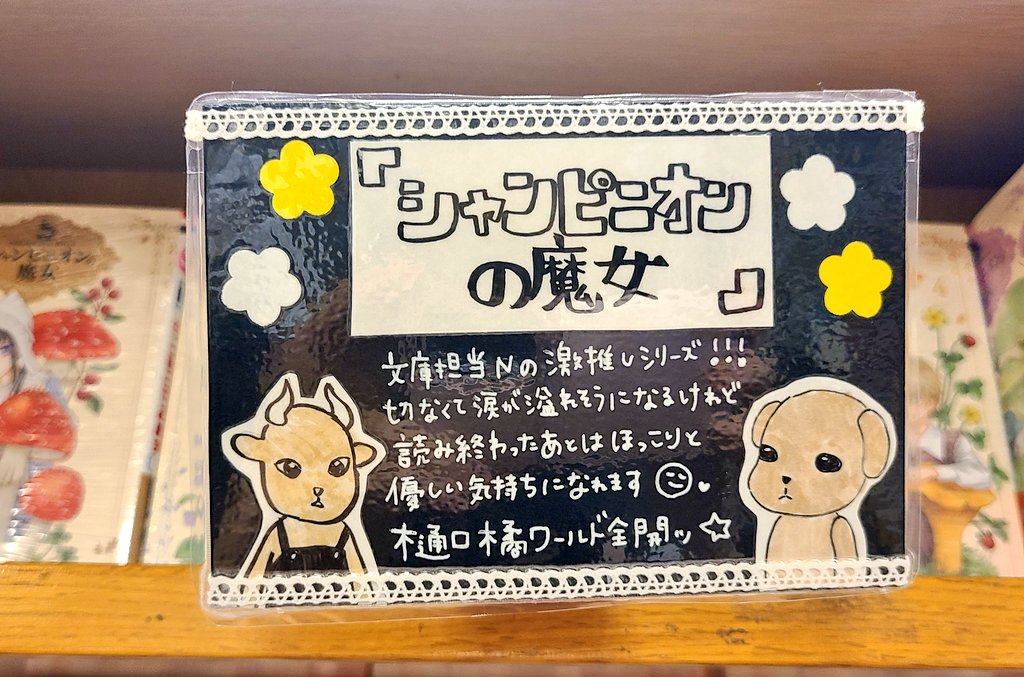 『シャンピニオン
の魔女』
文庫担当Nの激推しシリーズ!!!
切なくて涙が溢れそうになるけれど
読み終わったあとはほっこりと
優しい気持ちになれます
樋口橘ワールド全開ッ☆
シャンピニオンの
魔女